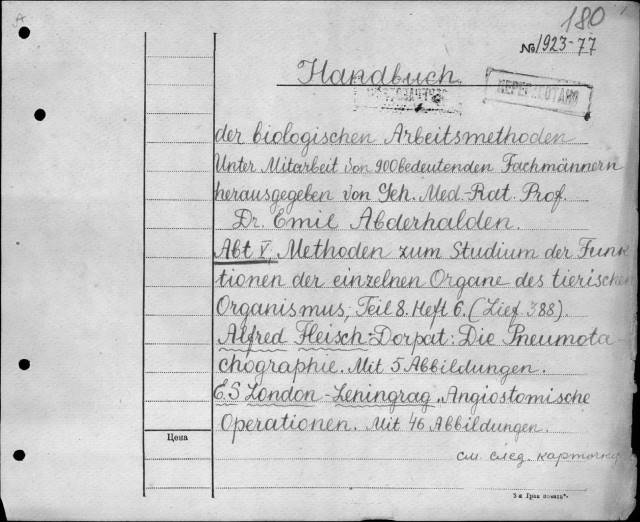 180
№ 1923-77
Handbuch
der biologischen Arbeitsmethoden
Unter Mitarbeit von 900 bedeutenden Fachmännern
herausgegeben von Geh. Med.-Rat. Prof.
Dr. Emil Abderhalden.
Abt V, Methoden zum Studium der Funk
tionen der einzelnen Organe des tierischen
Organismus, Teil 8. Heft 6. (Lief 388).
Alfred Fleisch-Dorpat: Die Pneumota-
chographie. Mit 5 Abbildungen.
E.S London-Leningrag. Angiostomische
Operationen. Mit 46 Abbildungen.
Цена
см. след. карточку